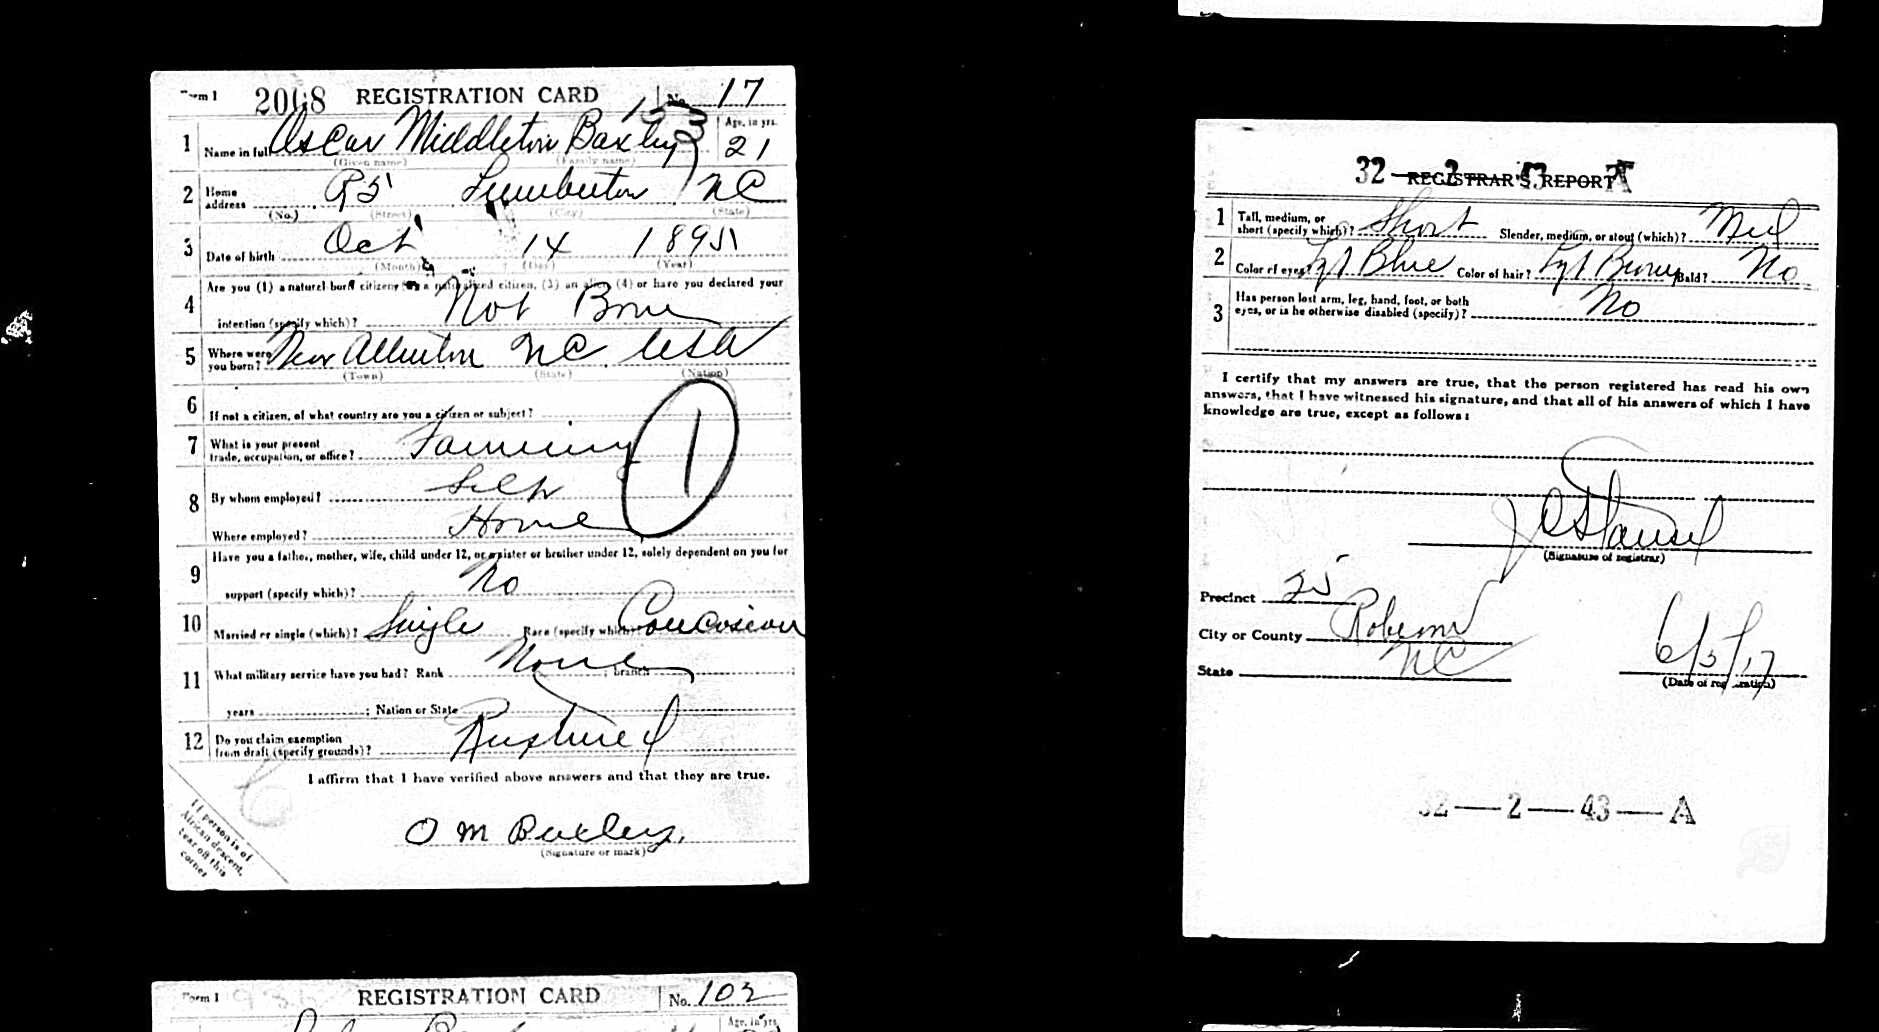 Form 1 2068 REGISTRATION CARD No. 17
153
1 Name in full Oscar Middleton Baxley Age, in yrs. 21
(Given name) (Family name)
2 Home address R5 Lumberton NC
(No.) (Street) (City) (State)
3 Date of birth Oct 14 1895
(Month) (Day) (Year)
Are you (1) a natural born citizen a naturalized citizen, (3) an alien (4) or have you declared your
4 intention (specify which)? Nat Born
5 Where were you born? Near NC USA
(Town) (State) (Nation)
6 If not a citizen, of what country are you a citizen or subject?
7 What is your present trade, occupation, or office? Farming
1
8 By whom employed? Self
Where employed? Home
Have you a father, mother, wife, child under 12, or sister or brother under 12, solely dependent on you for
9 support (specify which)? No
10 Married or single (which)? Single Race (specify which)? Caucasian
11 What military service have you had? Rank None ; branch ;
years ; Nation or State
12 Do you claim exemption from draft (specify grounds)? Ruptured
I affirm that I have verified above answers and that they are true.
O M Baxley,
(Signature or mark)
If person is of
African descent,
tear off this
corner
Form 1 REGISTRATION CARD No. 102
Age, in yrs.
32 2 A
REGISTRAR'S REPORT
1 Tall, medium, or short (specify which)? Short Slender, medium, or stout (which)? Med
2 Color of eyes? Lgt Blue Color of hair? Lgt Brown Bald? No
3 Has person lost arm, leg, hand, foot, or both eyes, or is he otherwise disabled (specify)? No
I certify that my answers are true, that the person registered has read his own
answers, that I have witnessed his signature, and that all of his answers of which I have
knowledge are true, except as follows:
(Signature of registrar)
Precinct 25
City or County Robeson
State NC 6/5/17
(Date of registration)
32—2—43—A